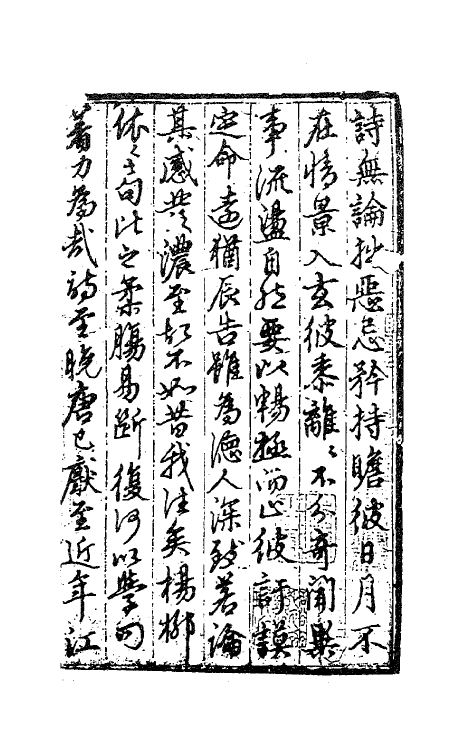 詩無論拙惡忌矜持瞻彼日月不
在情景入玄彼黍離〻不分奇聞異
事流盪自然要以暢極而止彼訏謨
定命遠猶辰告雖為德人深致若論
其感發濃至却不如昔我往矣楊柳
依〻之句此之柔腸易斷復何以學問
著力為哉詩至晚唐已厭至近年江